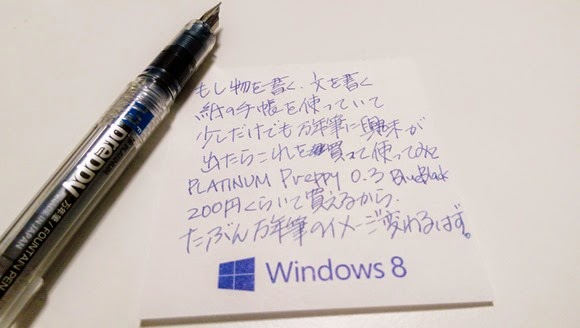 もし物を書く、文を書く
紙の手帳を使っていて
少しだけでも万年筆に興味が
出たらこれを買って使ってみて
PLATINUM Preppy 0.3 BlueBlack
200円くらいで買えるから。
たぶん万年筆のイメージ変わるはず。
Windows 8
preppy
万年筆/FOUNTAIN PEN
MADE IN JAPAN